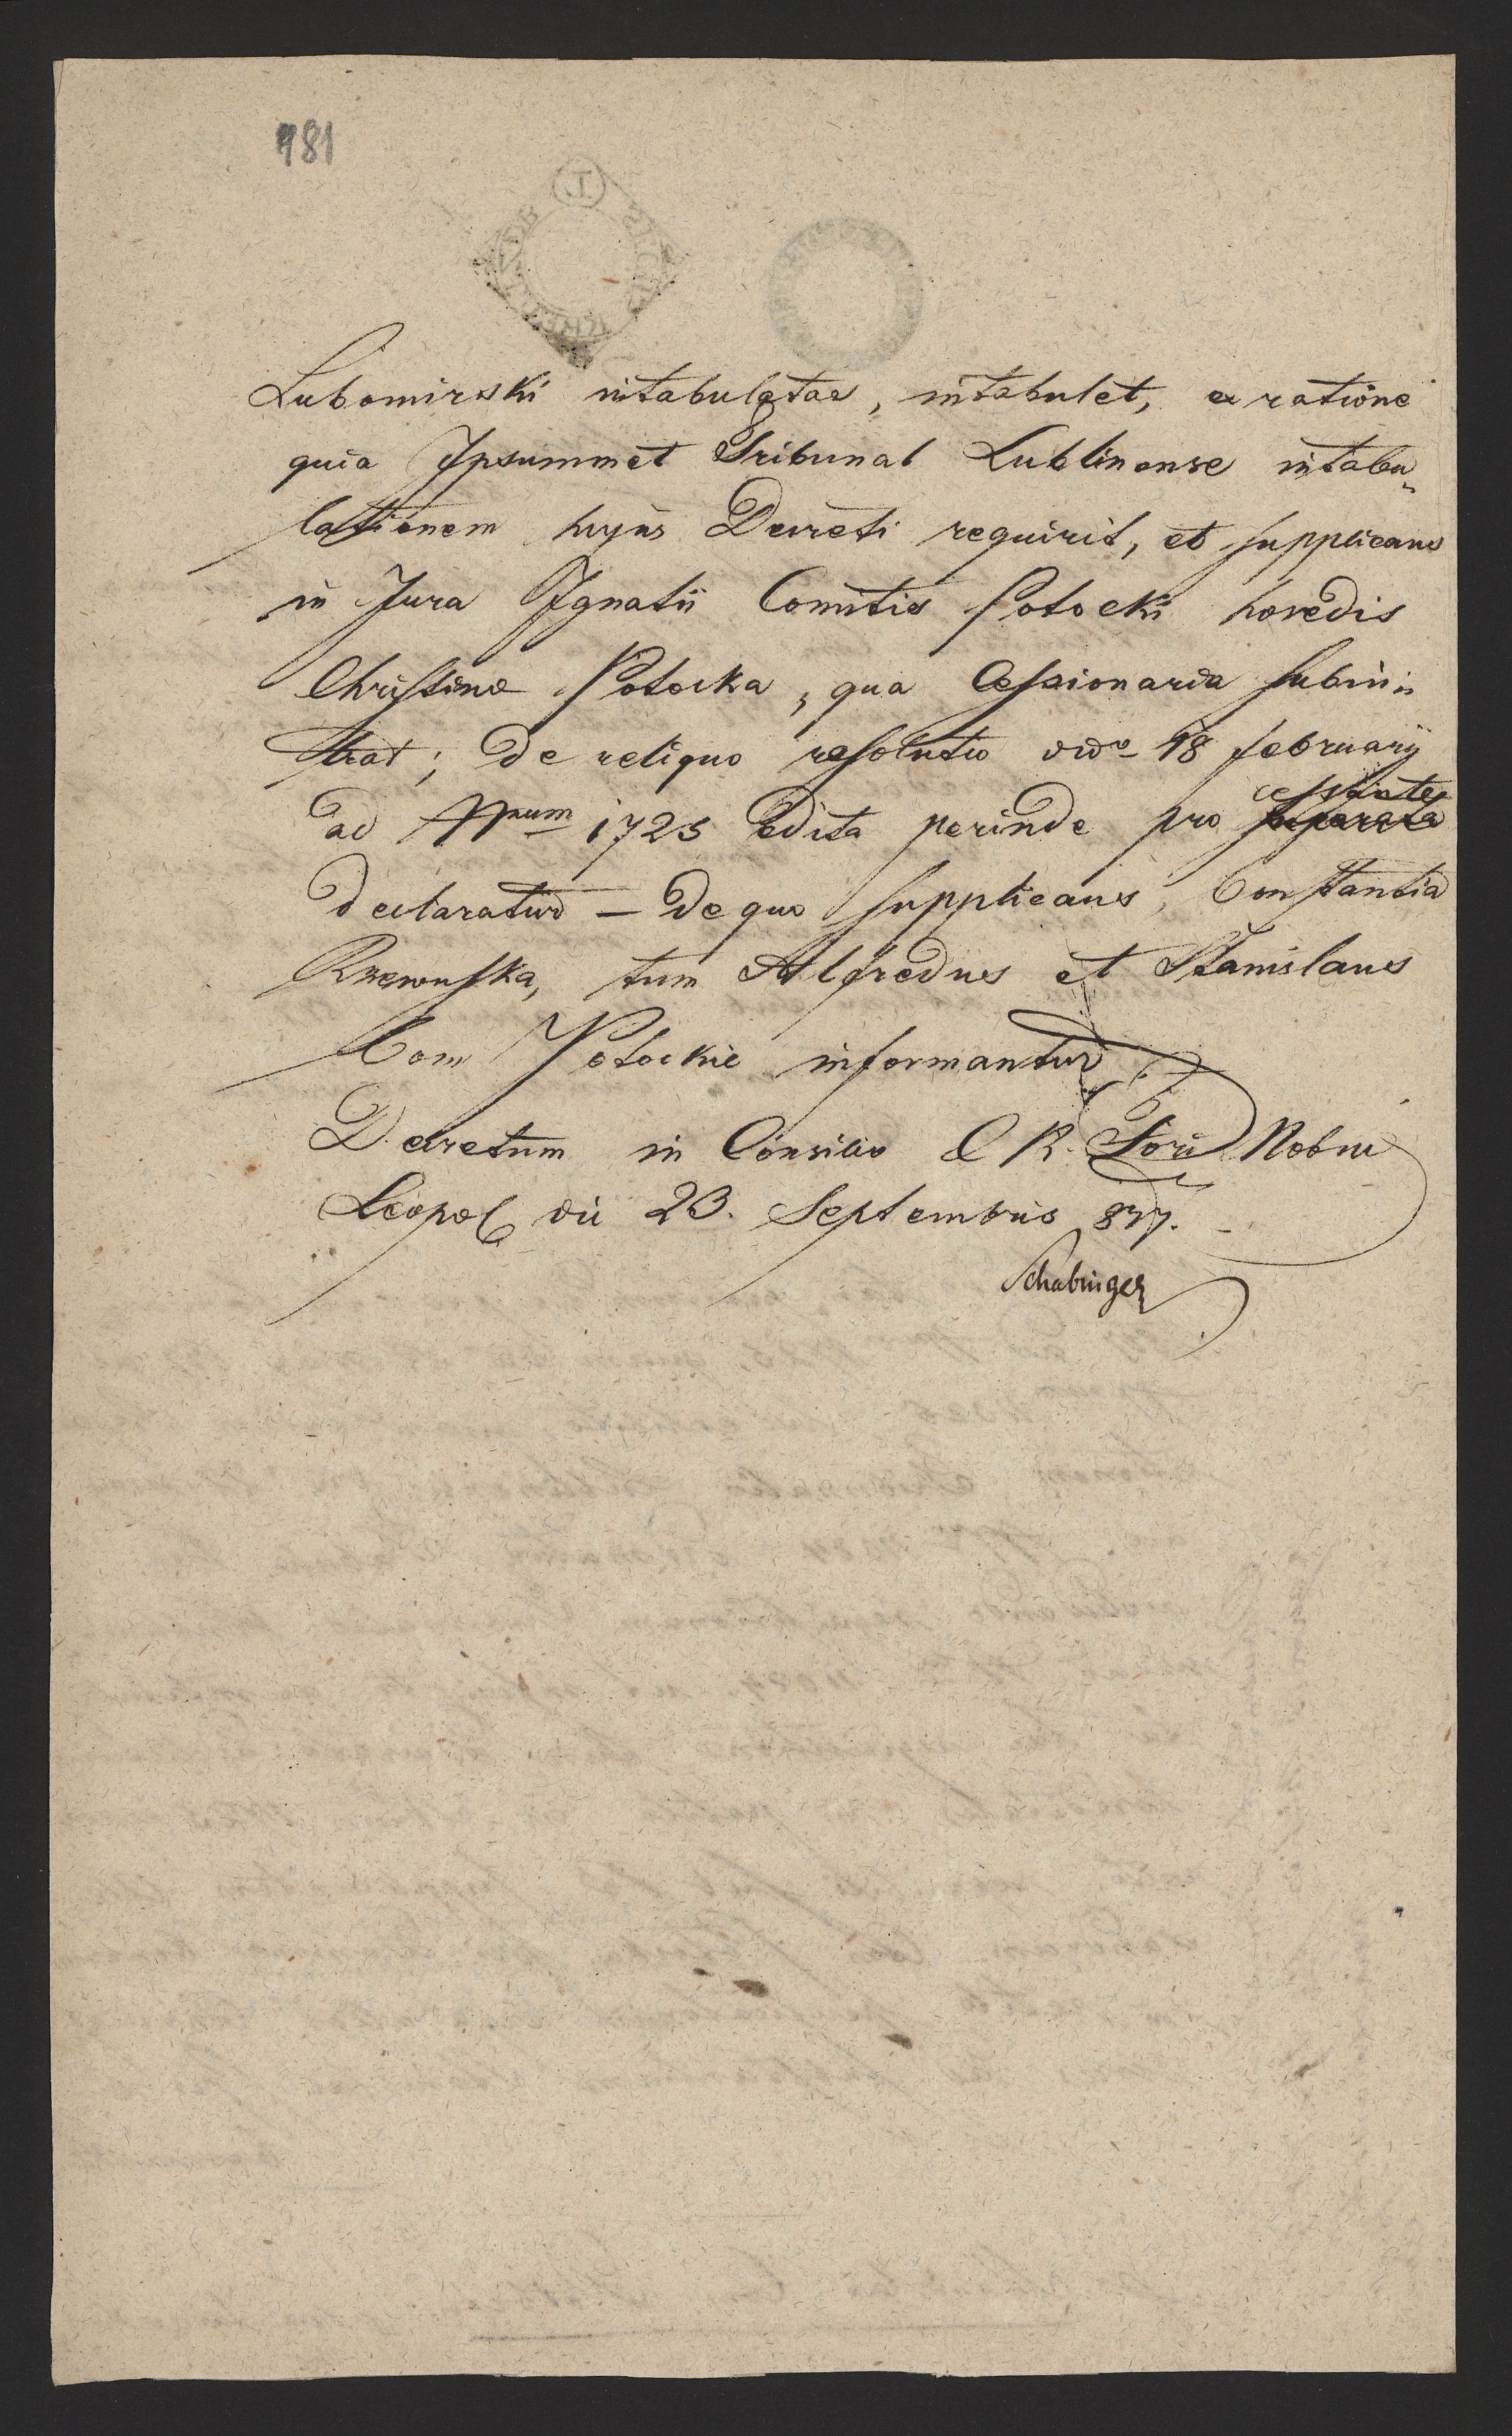 981
Lubomirski intabulatas, intabulet, ex ratione
quia Ipsummet Tribunal Lublinense intabu„
lationem hujus Decreti requirit, et supplicans
in Jura Ignatii Comitis Potocki heredis
Christine Potocka, qua Cessionaria subin„
trat; De reliquo resolutio ddo 18 february
ad Nrum 1723 edita perinde pro cessante
declaratur — De quo supplicans, Constantia
Rzewuska, tum Alfredus et Stanislaus
Com Potockie informantur.
Decretum in Consilio C R. Fori Nobm
Leopol die 23. Septembris 837.
Schabinger